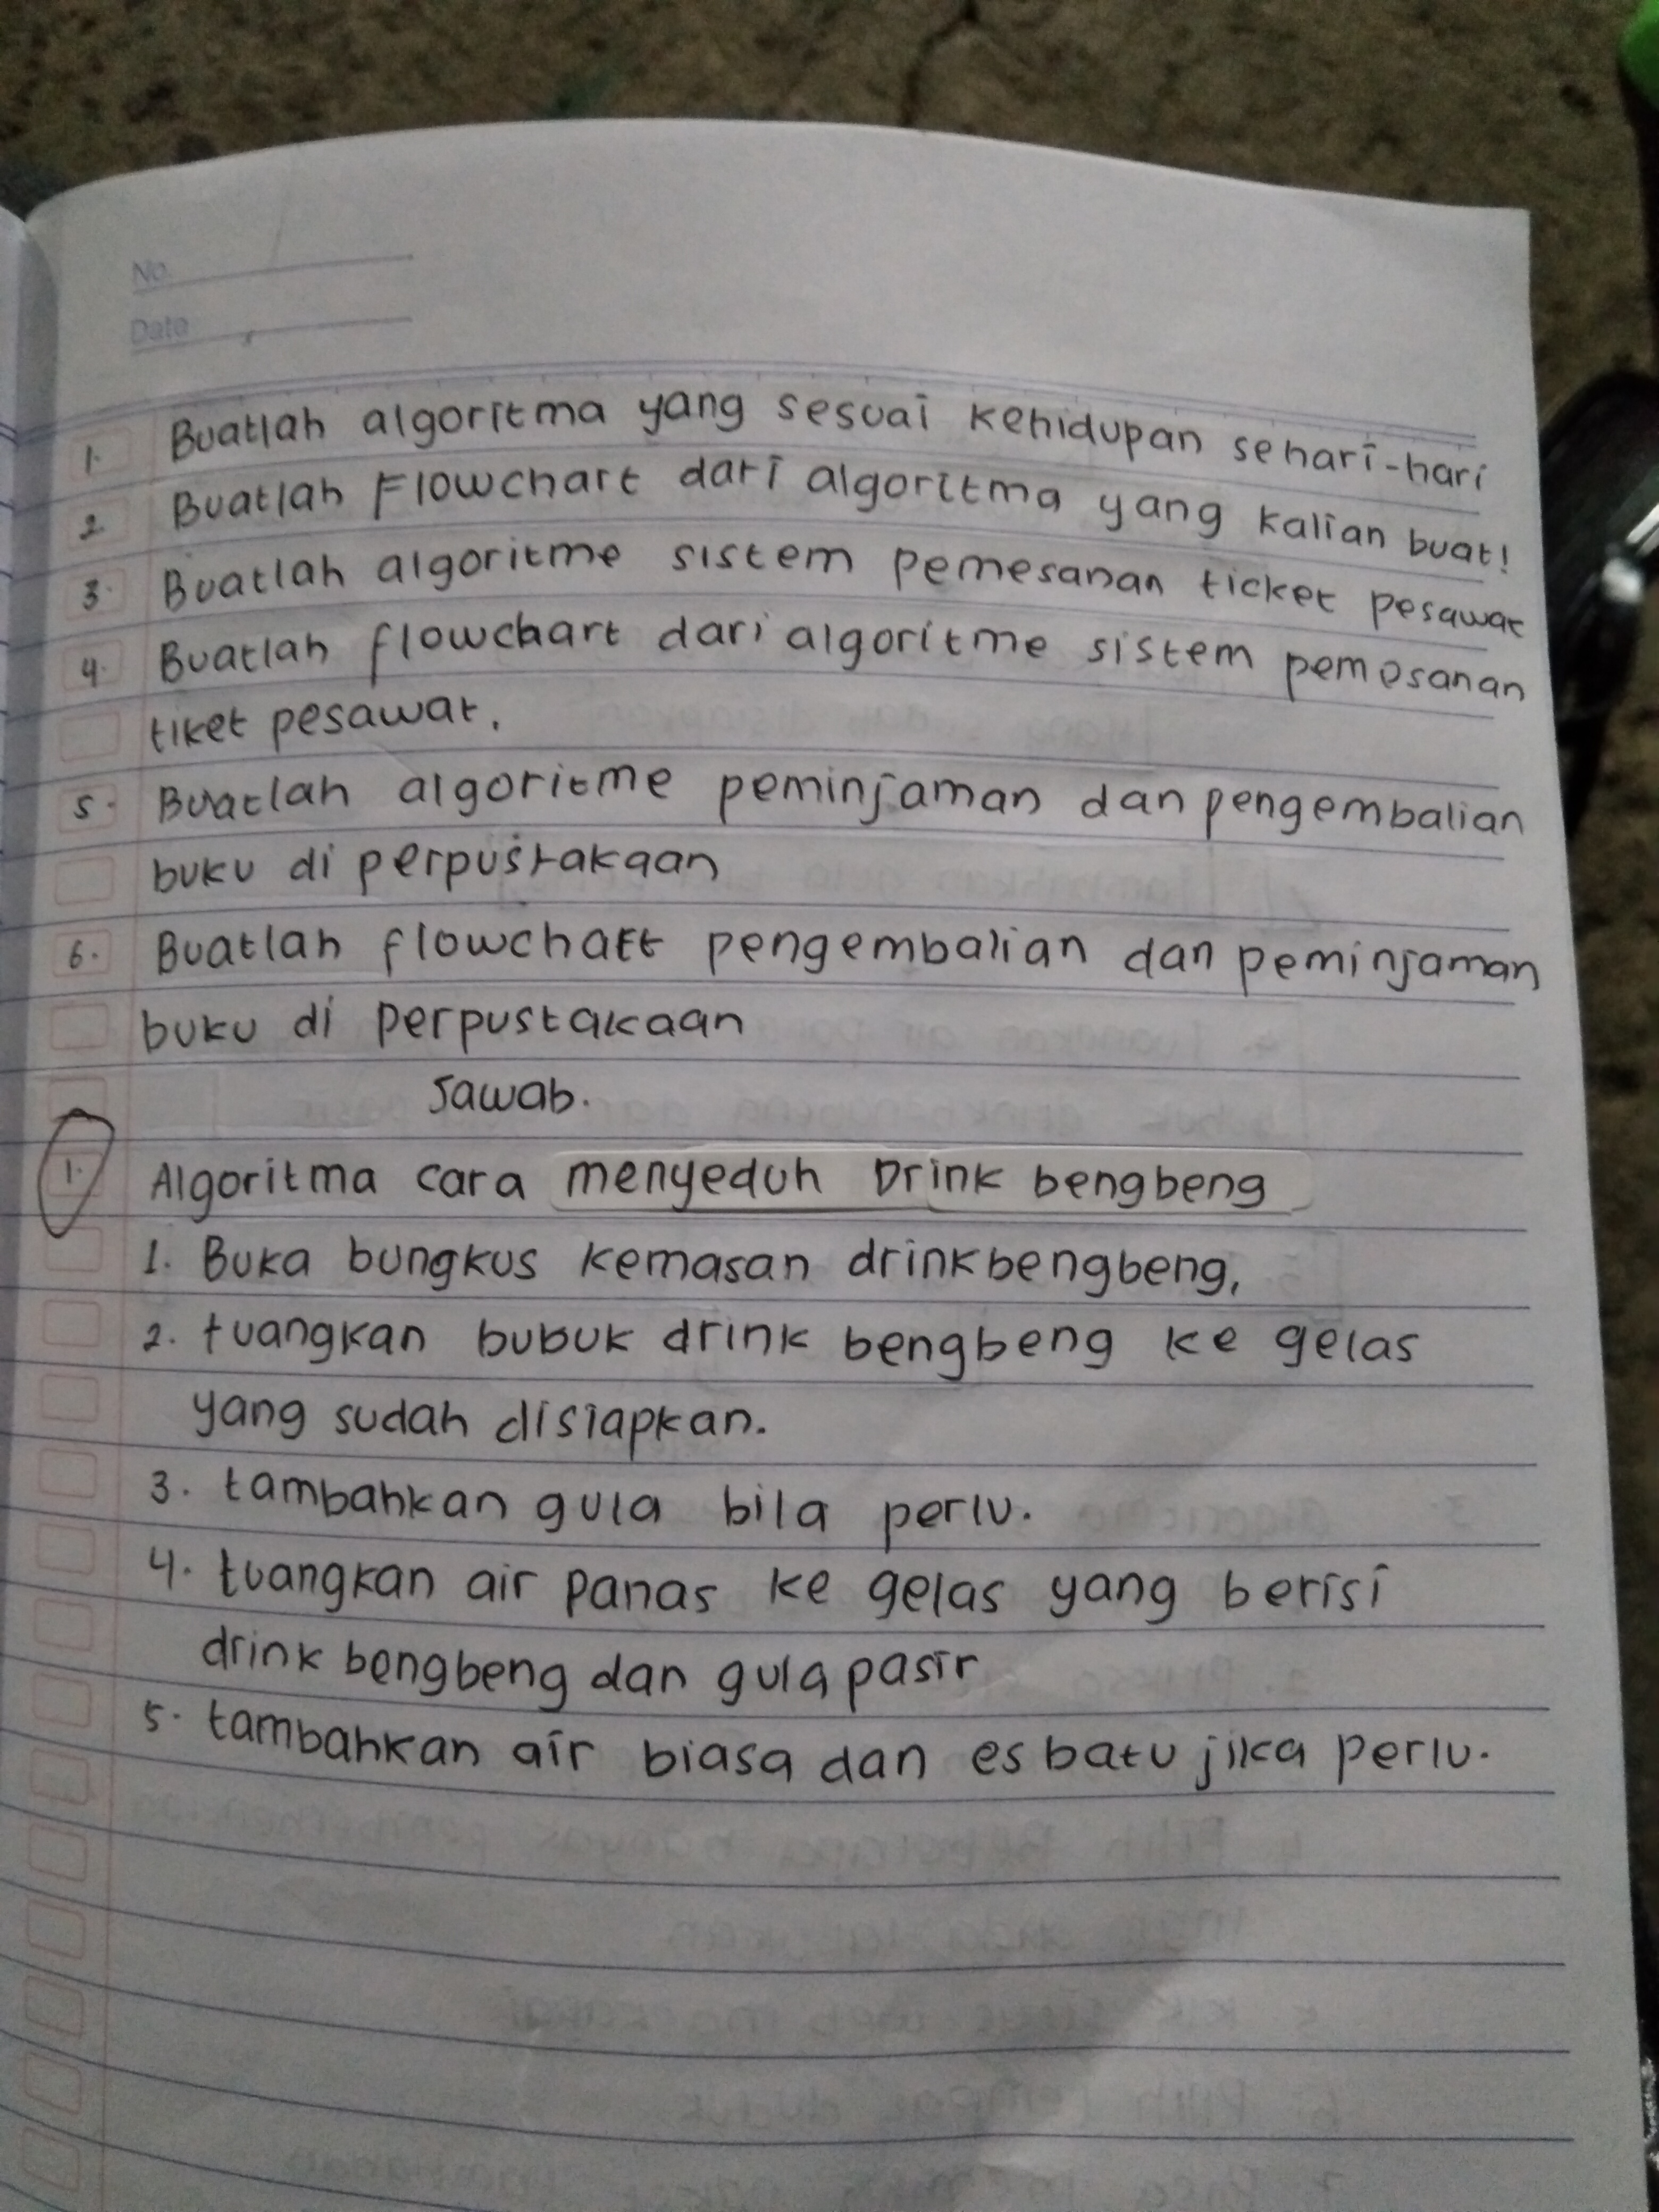 No
Date
1. Buatlah algoritma yang sesuai kehidupan sehari-hari
2 Buatlah Flowchart dari algoritma yang kalian buat!
3. Buatlah algoritme sistem pemesanan ticket pesawat
4. Buatlah flowchart dari algoritme sistem pemesanan
tiket pesawat.
5. Buatlah algoritme peminjaman dan pengembalian
buku di perpustakaan
6. Buatlah flowchart pengembalian dan peminjaman
buku di perpustakaan
Jawab.
1. Algoritma cara menyeduh Drink bengbeng
1. Buka bungkus kemasan drinkbengbeng,
2. tuangkan bubuk drink bengbeng ke gelas
yang sudah disiapkan.
3. tambahkan gula bila perlu.
4. tuangkan air panas ke gelas yang berisi
drink bengbeng dan gula pasir
5. tambahkan air biasa dan es batu jika perlu.